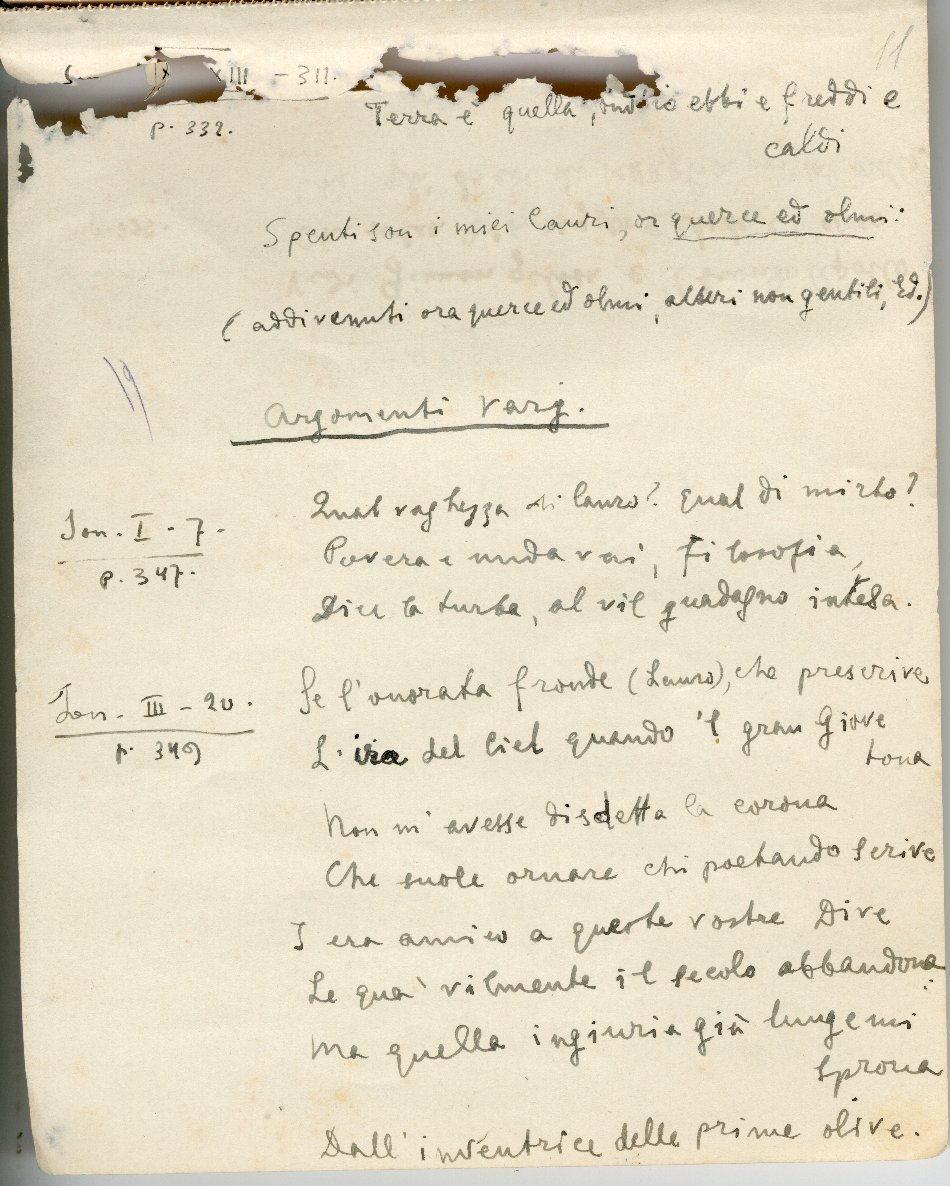 11
XIII - 311.
p. 332.
Terra è quella, ond'io ebbi e freddi e
caldi
Spenti son i miei lauri, or querce ed olmi:
(addivenuti ora querce ed olmi, alberi non gentili, Ed.)
19
Argomenti Varj.
Son. I - 7.
p. 347.
Qual vaghezza di lauro? qual di mirto?
Povera e nuda vai, Filosofia,
Dice la turba, al vil guadagno intesa.
Son. III - 20.
p. 349
Se l'onorata fronde (Lauro), che prescrive
L'ira del ciel quando 'l gran Giove
tona
Non m'avesse disdetta la corona
Che suole ornare chi poetando scrive
I era amico a queste vostre Dive
Le qua' vilmente il secolo abbandona:
Ma quella ingiuria già lunge mi
sprona
Dall'inventrice delle prime olive.